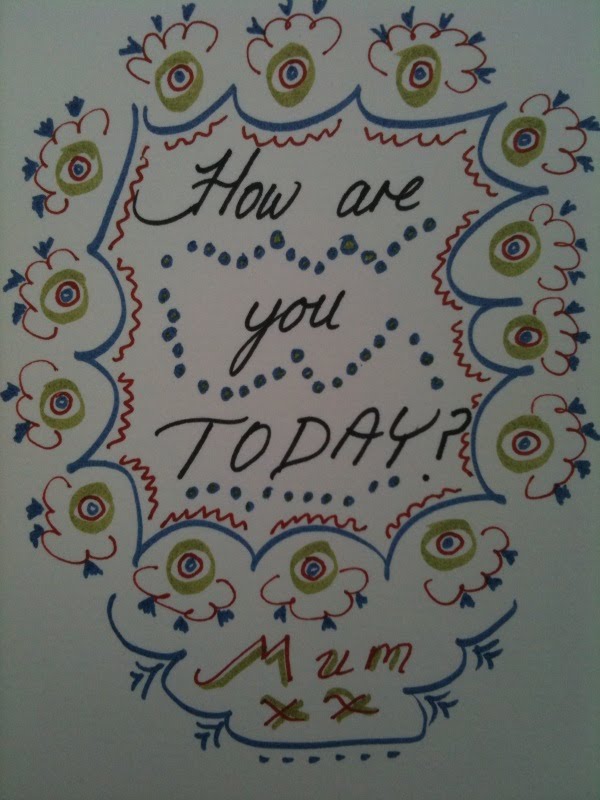 How are
you
TODAY?
Mum
x x